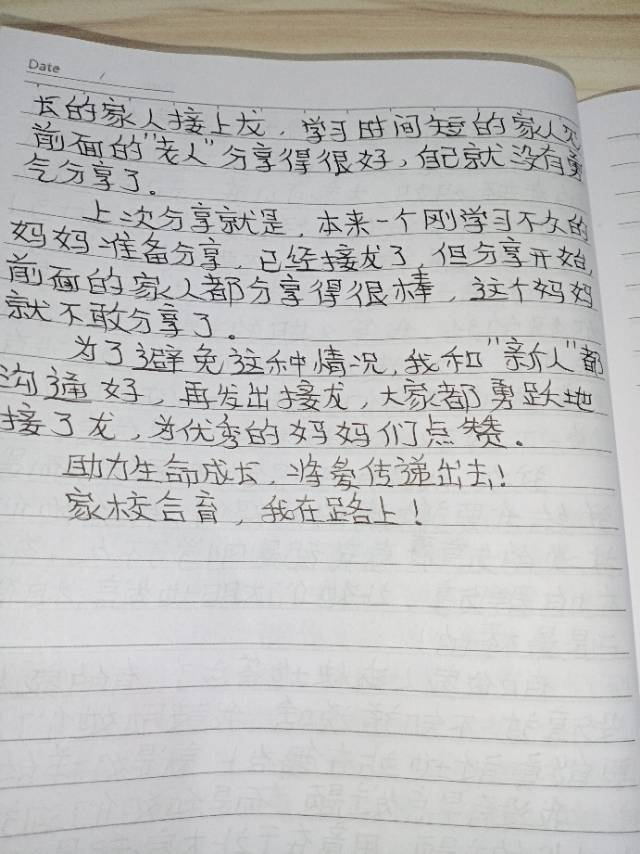 Date /
长的家人接上龙，学习时间短的家人见
前面的"老人"分享得很好，自己就没有勇
气分享了。
上次分享就是，本来一个刚学习不久的
妈妈准备分享，已经接龙了，但分享开始，
前面的家人都分享得很棒，这个妈妈
就不敢分享了。
为了避免这种情况，我和"新人"都
沟通好，再发出接龙，大家都勇跃地
接了龙，为优秀的妈妈们点赞。
助力生命成长，将爱传递出去！
家校合育，我在路上！